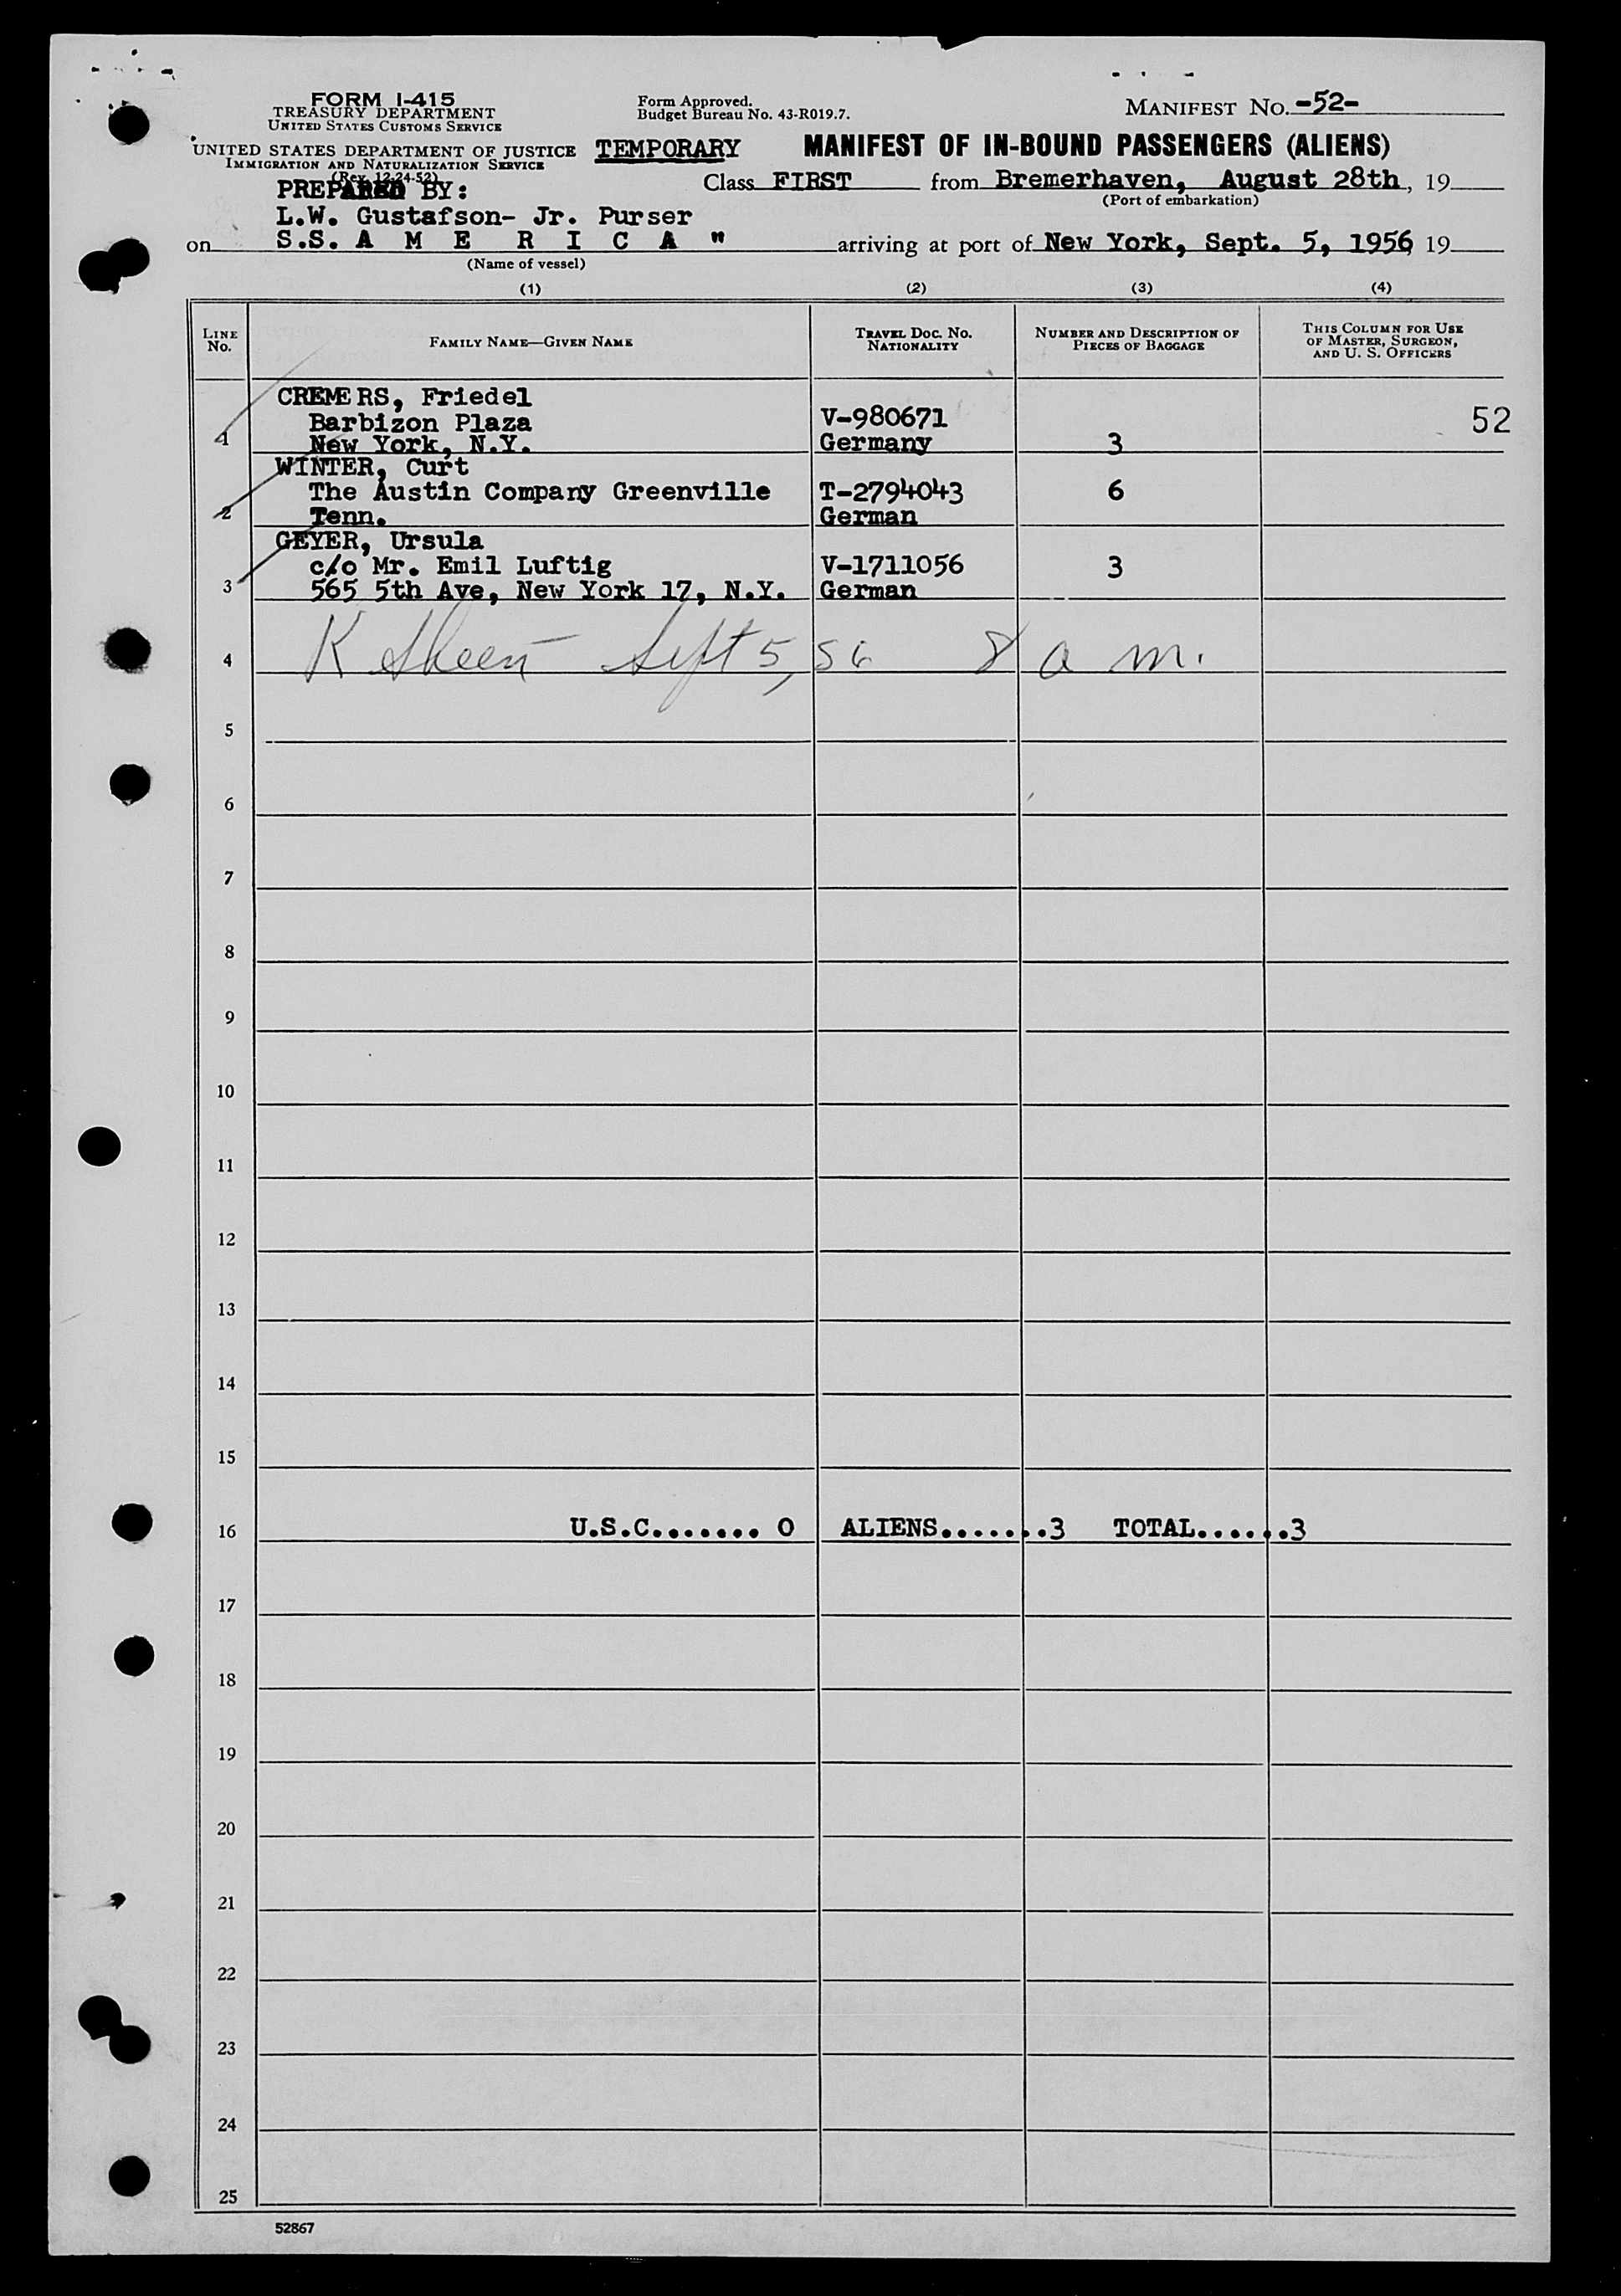 FORM I-415
TREASURY DEPARTMENT
UNITED STATES CUSTOMS SERVICE
Form Approved.
Budget Bureau No. 43-R019.7.
MANIFEST NO. -52-
UNITED STATES DEPARTMENT OF JUSTICE
IMMIGRATION AND NATURALIZATION SERVICE
(Rev. 12-24-52)
TEMPORARY MANIFEST OF IN-BOUND PASSENGERS (ALIENS)
PREPARED BY:
Class FIRST from Bremerhaven, August 28th, 19
(Port of embarkation)
L.W. Gustafson- Jr. Purser
on S.S. A M E R I C A " arriving at port of New York, Sept. 5, 1956, 19
(Name of vessel)
(1) (2) (3) (4)
LINE NO.
FAMILY NAME—GIVEN NAME
TRAVEL DOC. NO.
NATIONALITY
NUMBER AND DESCRIPTION OF
PIECES OF BAGGAGE
THIS COLUMN FOR USE
OF MASTER, SURGEON,
AND U. S. OFFICERS
CREMERS, Friedel
Barbizon Plaza V-980671 52
1 New York, N.Y. Germany 3
WINTER, Curt
The Austin Company Greenville T-2794043 6
2 Tenn. German
GEYER, Ursula
c/o Mr. Emil Luftig V-1711056 3
3 565 5th Ave, New York 17, N.Y. German
4 K Sept 5, 56 8 a m.
5
6
7
8
9
10
11
12
13
14
15
16 U.S.C....... 0 ALIENS.......3 TOTAL......3
17
18
19
20
21
22
23
24
25
52867